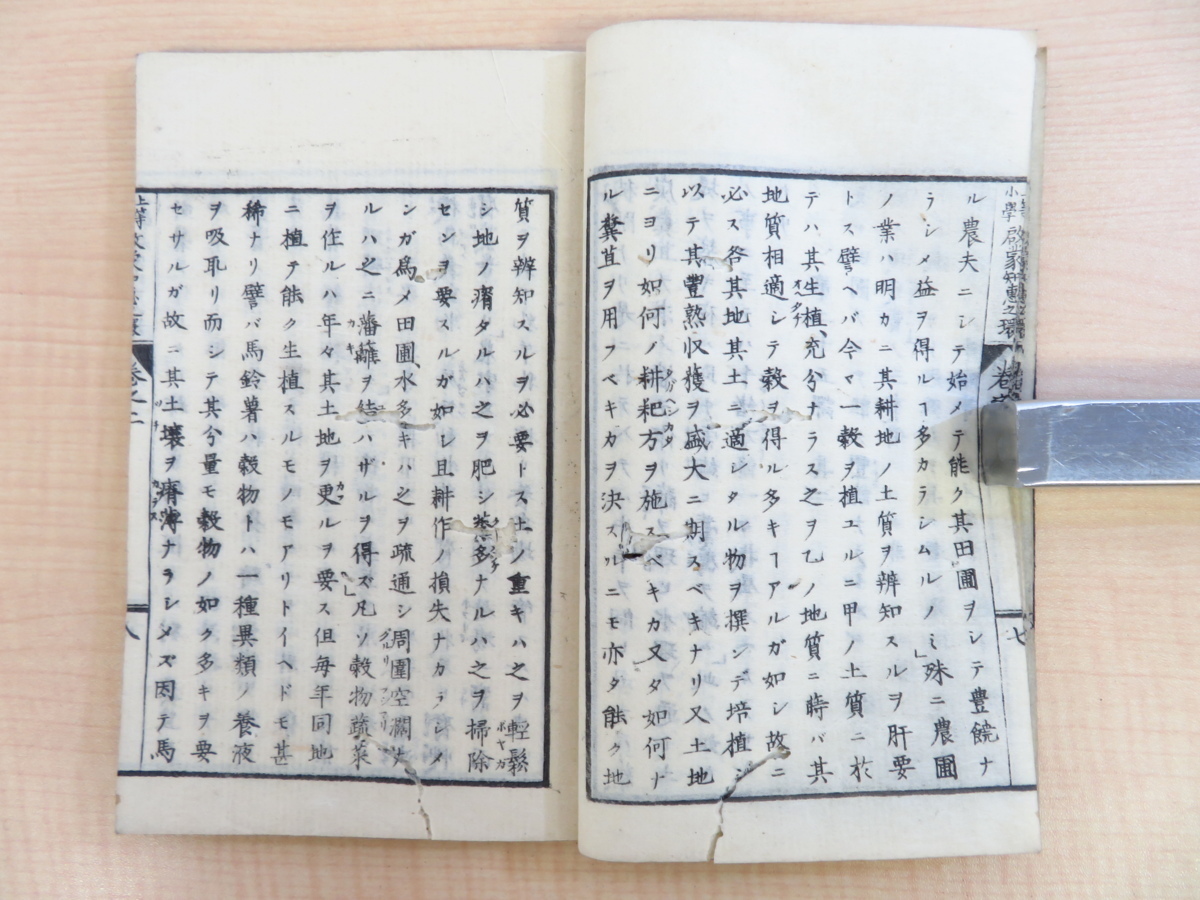 ル農夫ニシテ始メテ能ク其田圃ヲシテ豊饒ナ
ラシメ益ヲ得ルヿ多カラシムルノミ」殊ニ農圃
ノ業ハ明カニ其耕地ノ土質ヲ辨知スルヲ肝要
トス譬ヘバ今マ一穀ヲ植ユルニ甲ノ土質ニ於
テハ其生植充分ナラス之ヲ乙ノ地質ニ蒔バ其
地質相適シテ穀ヲ得ル多キヿアルガ如シ故ニ
必ス各其地其土ニ適シタル物ヲ撰ンデ培植シ
以テ其豐熟収獲ヲ盛大ニ期スベキナリ又土地
ニヨリ如何ノ耕耙方ヲ施スベキカ又タ如何ナ
ル糞苴ヲ用フベキカヲ決スルニモ亦タ能ク地
七
質ヲ辨知スルヲ必要トス土ノ重キハ之ヲ輕鬆
シ地ノ瘠タルハ之ヲ肥シ多ナルハ之ヲ掃除
センヲ要スルガ如シ且耕作ノ損失ナカラシメ
ンガ爲メ田圃水多キハ之ヲ疏通シ周圍空濶
ルハ之ニ藩籬ヲ結ハザルヲ得ズ」凡ソ穀物蔬菜
ヲ作ルハ年々其土地ヲ更ルヲ要ス但毎年同地
ニ植テ能ク生植スルモノモアリトイヘドモ甚
稀ナリ譬バ馬鈴薯ハ穀物トハ一種異類ノ養液
ヲ吸取リ而シテ其分量モ穀物ノ如ク多キヲ要
セサルガ故ニ其土壤ヲ瘠薄ナラシメズ因テ馬
卷之二
八